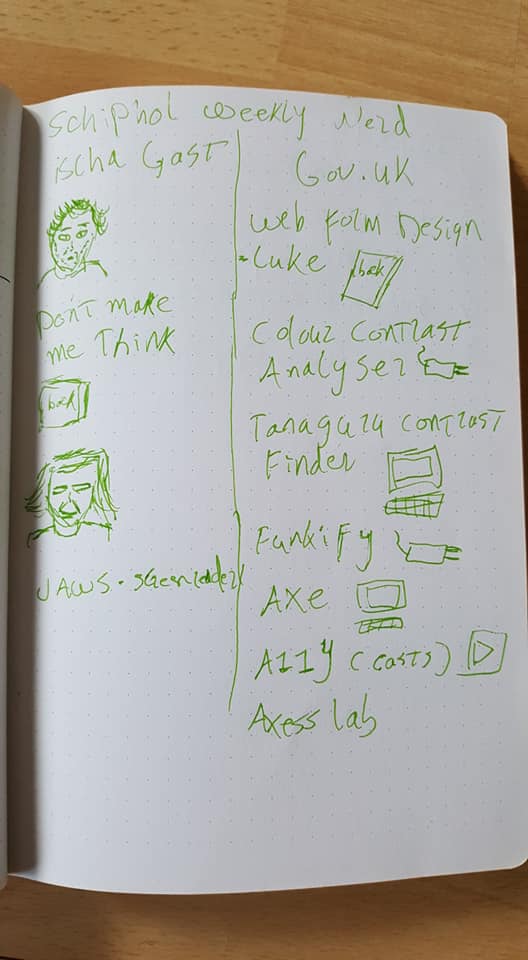 Schiphol Weekly Nerd
ischa Gast
Don't make
me Think
book
JAWS. SGeenreader
Gov.uk
Web Form Design
Luke
book
Colour Contrast
Analyser
Tanaguru contrast
Finder
Funkify
AXe
A11y (casts)
Axess lab